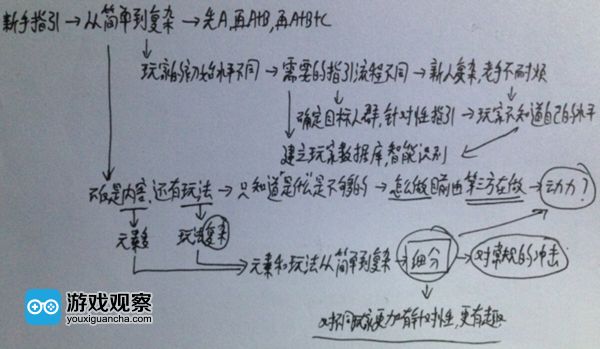 新手指引→从简单到复杂→先A,再A+B,再A+B+C
玩家的初始水平不同→需要的指引流程不同→新人复杂,老手不耐烦
确定目标人群,针对性指引→玩家不知道自己的水平
建立玩家数据库,智能识别
不仅是内容,还有玩法→只知道"是什么"是不够的→怎么做目前由第三方在做→动力?
元素多 玩法复杂
元素和玩法从简单到复杂→细分→对常规的冲击
对不同玩家更加有针对性,更有趣
游戏观察
youxiguancha.com